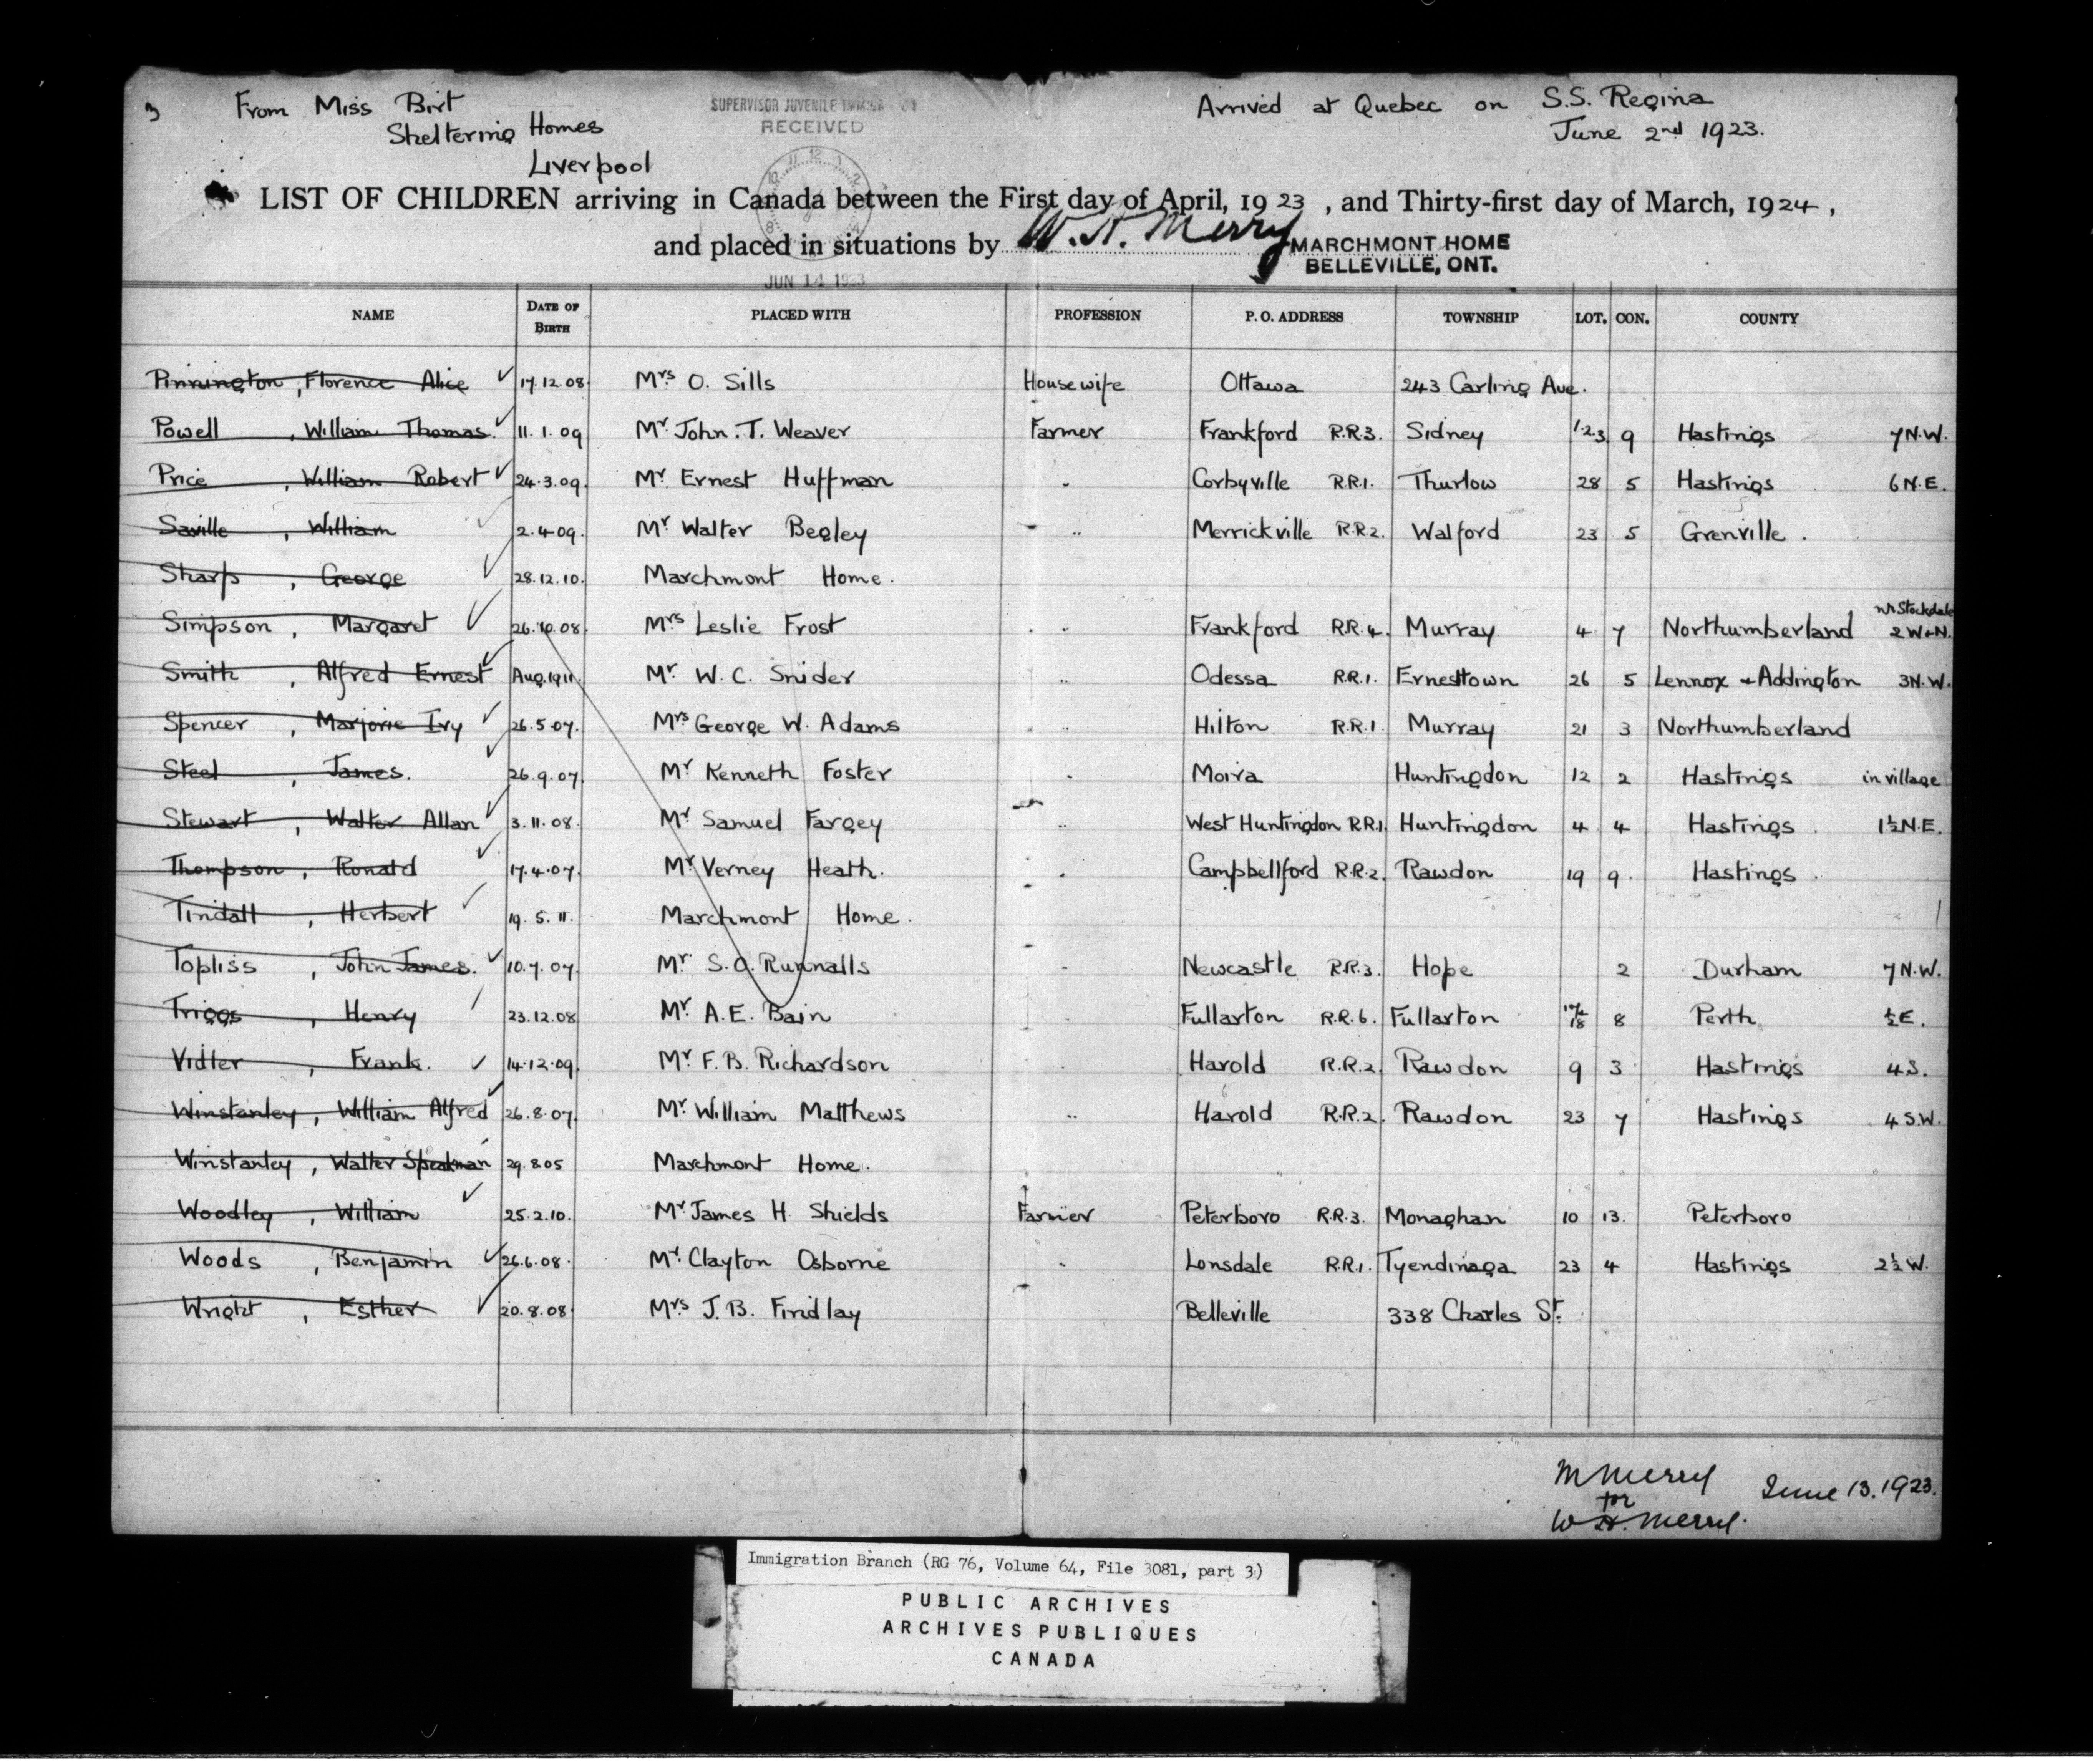 3 From Miss Birt SUPERVISOR JUVENILE Arrived at Quebec on S.S. Regina
Sheltering Homes RECEIVED June 2nd 1923.
Liverpool
LIST OF CHILDREN arriving in Canada between the First day of April, 1923, and Thirty-first day of March, 1924,
and placed in situations by W. H. Merry MARCHMONT HOME
BELLEVILLE, ONT.
JUN 14 1923
NAME DATE OF BIRTH PLACED WITH PROFESSION P. O. ADDRESS TOWNSHIP LOT. CON. COUNTY
Pinnington, Florence Alice ✓ 17.12.08. Mrs O. Sills Housewife Ottawa 243 Carling Ave.
Powell, William Thomas. ✓ 11.1.09 Mr John. T. Weaver Farmer Frankford R.R.3. Sidney 1.2.3 9 Hastings 7 N.W.
Price, William Robert ✓ 24.3.09. Mr Ernest Huffman " Corbyville R.R.1. Thurlow 28 5 Hastings 6 N.E.
Saville, William ✓ 2.4.09. Mr Walter Begley " Merrickville R.R.2. Walford 23 5 Grenville.
Sharp, George ✓ 28.12.10. Marchmont Home.
Simpson, Margaret ✓ 26.10.08. Mrs Leslie Frost " Frankford R.R.4. Murray 4 7 Northumberland nr Stockdale 2 W+N.
Smith, Alfred Ernest ✓ Aug.1911. Mr. W. C. Snider " Odessa R.R.1. Ernesttown 26 5 Lennox + Addington 3 N.W.
Spencer, Marjorie Ivy ✓ 26.5.07. Mrs George W. Adams " Hilton R.R.1. Murray 21 3 Northumberland
Steel, James. ✓ 26.9.07. Mr Kenneth Foster " Moira Huntingdon 12 2 Hastings in village
Stewart, Walter Allan ✓ 3.11.08. Mr Samuel Fargey " West Huntingdon R.R.1. Huntingdon 4 4 Hastings. 1½ N.E.
Thompson, Ronald ✓ 17.4.07. Mr Verney Heath. " Campbellford R.R.2. Rawdon 19 9. Hastings.
Tindall, Herbert ✓ 19.5.11. Marchmont Home.
Topliss, John James. ✓ 10.7.07. Mr S. O. Runnalls " Newcastle R.R.3. Hope 2 Durham 7 N.W.
Triggs, Henry 23.12.08 Mr. A. E. Bain Fullarton R.R.6. Fullarton 17/18 8 Perth ½ E.
Vidler, Frank. ✓ 14.12.09. Mr F. B. Richardson " Harold R.R.2. Rawdon 9 3 Hastings 4 S.
Winstanley, William Alfred ✓ 26.8.07. Mr. William Matthews " Harold R.R.2. Rawdon 23 7 Hastings 4 S.W.
Winstanley, Walter Speakman 29.8.05 Marchmont Home.
Woodley, William ✓ 25.2.10. Mr James H. Shields Farmer Peterboro R.R.3. Monaghan 10 13. Peterboro
Woods, Benjamin ✓ 26.6.08. Mr. Clayton Osborne " Lonsdale R.R.1. Tyendinaga 23 4 Hastings 2½ W.
Wright, Esther ✓ 20.8.08. Mrs J. B. Findlay Belleville 338 Charles St.
M Merry June 13. 1923.
for
W. H. Merry.
Immigration Branch (RG 76, Volume 64, File 3081, part 3)
PUBLIC ARCHIVES
ARCHIVES PUBLIQUES
CANADA